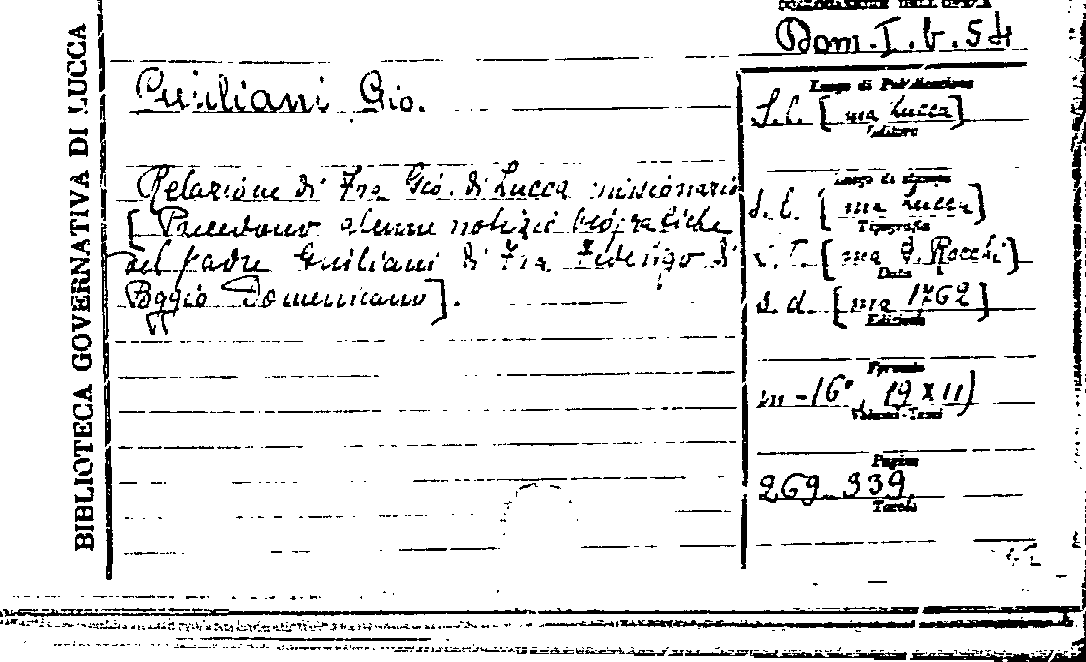 COLLOCAZIONE DELL'OPERA
Dom. I. b. 54
BIBLIOTECA GOVERNATIVA DI LUCCA
Giuliani Gio.
Relazione di Fra Gio. di Lucca missionario
[Precedono alcune notizie biografiche
del padre Giuliani di Fra Federigo di
Poggio Domenicano].
Luogo di Pubblicazione
S.l. [ma Lucca]
Editore
Luogo di stampa
S.l. [ma Lucca]
Tipografia
s.T. [ma G. Rocchi]
Data
s.d. [ma 1762]
Edizione
Formato
in-16°, 19 X 11)
Volumi-Tomi
Pagine
269-339
Tavole